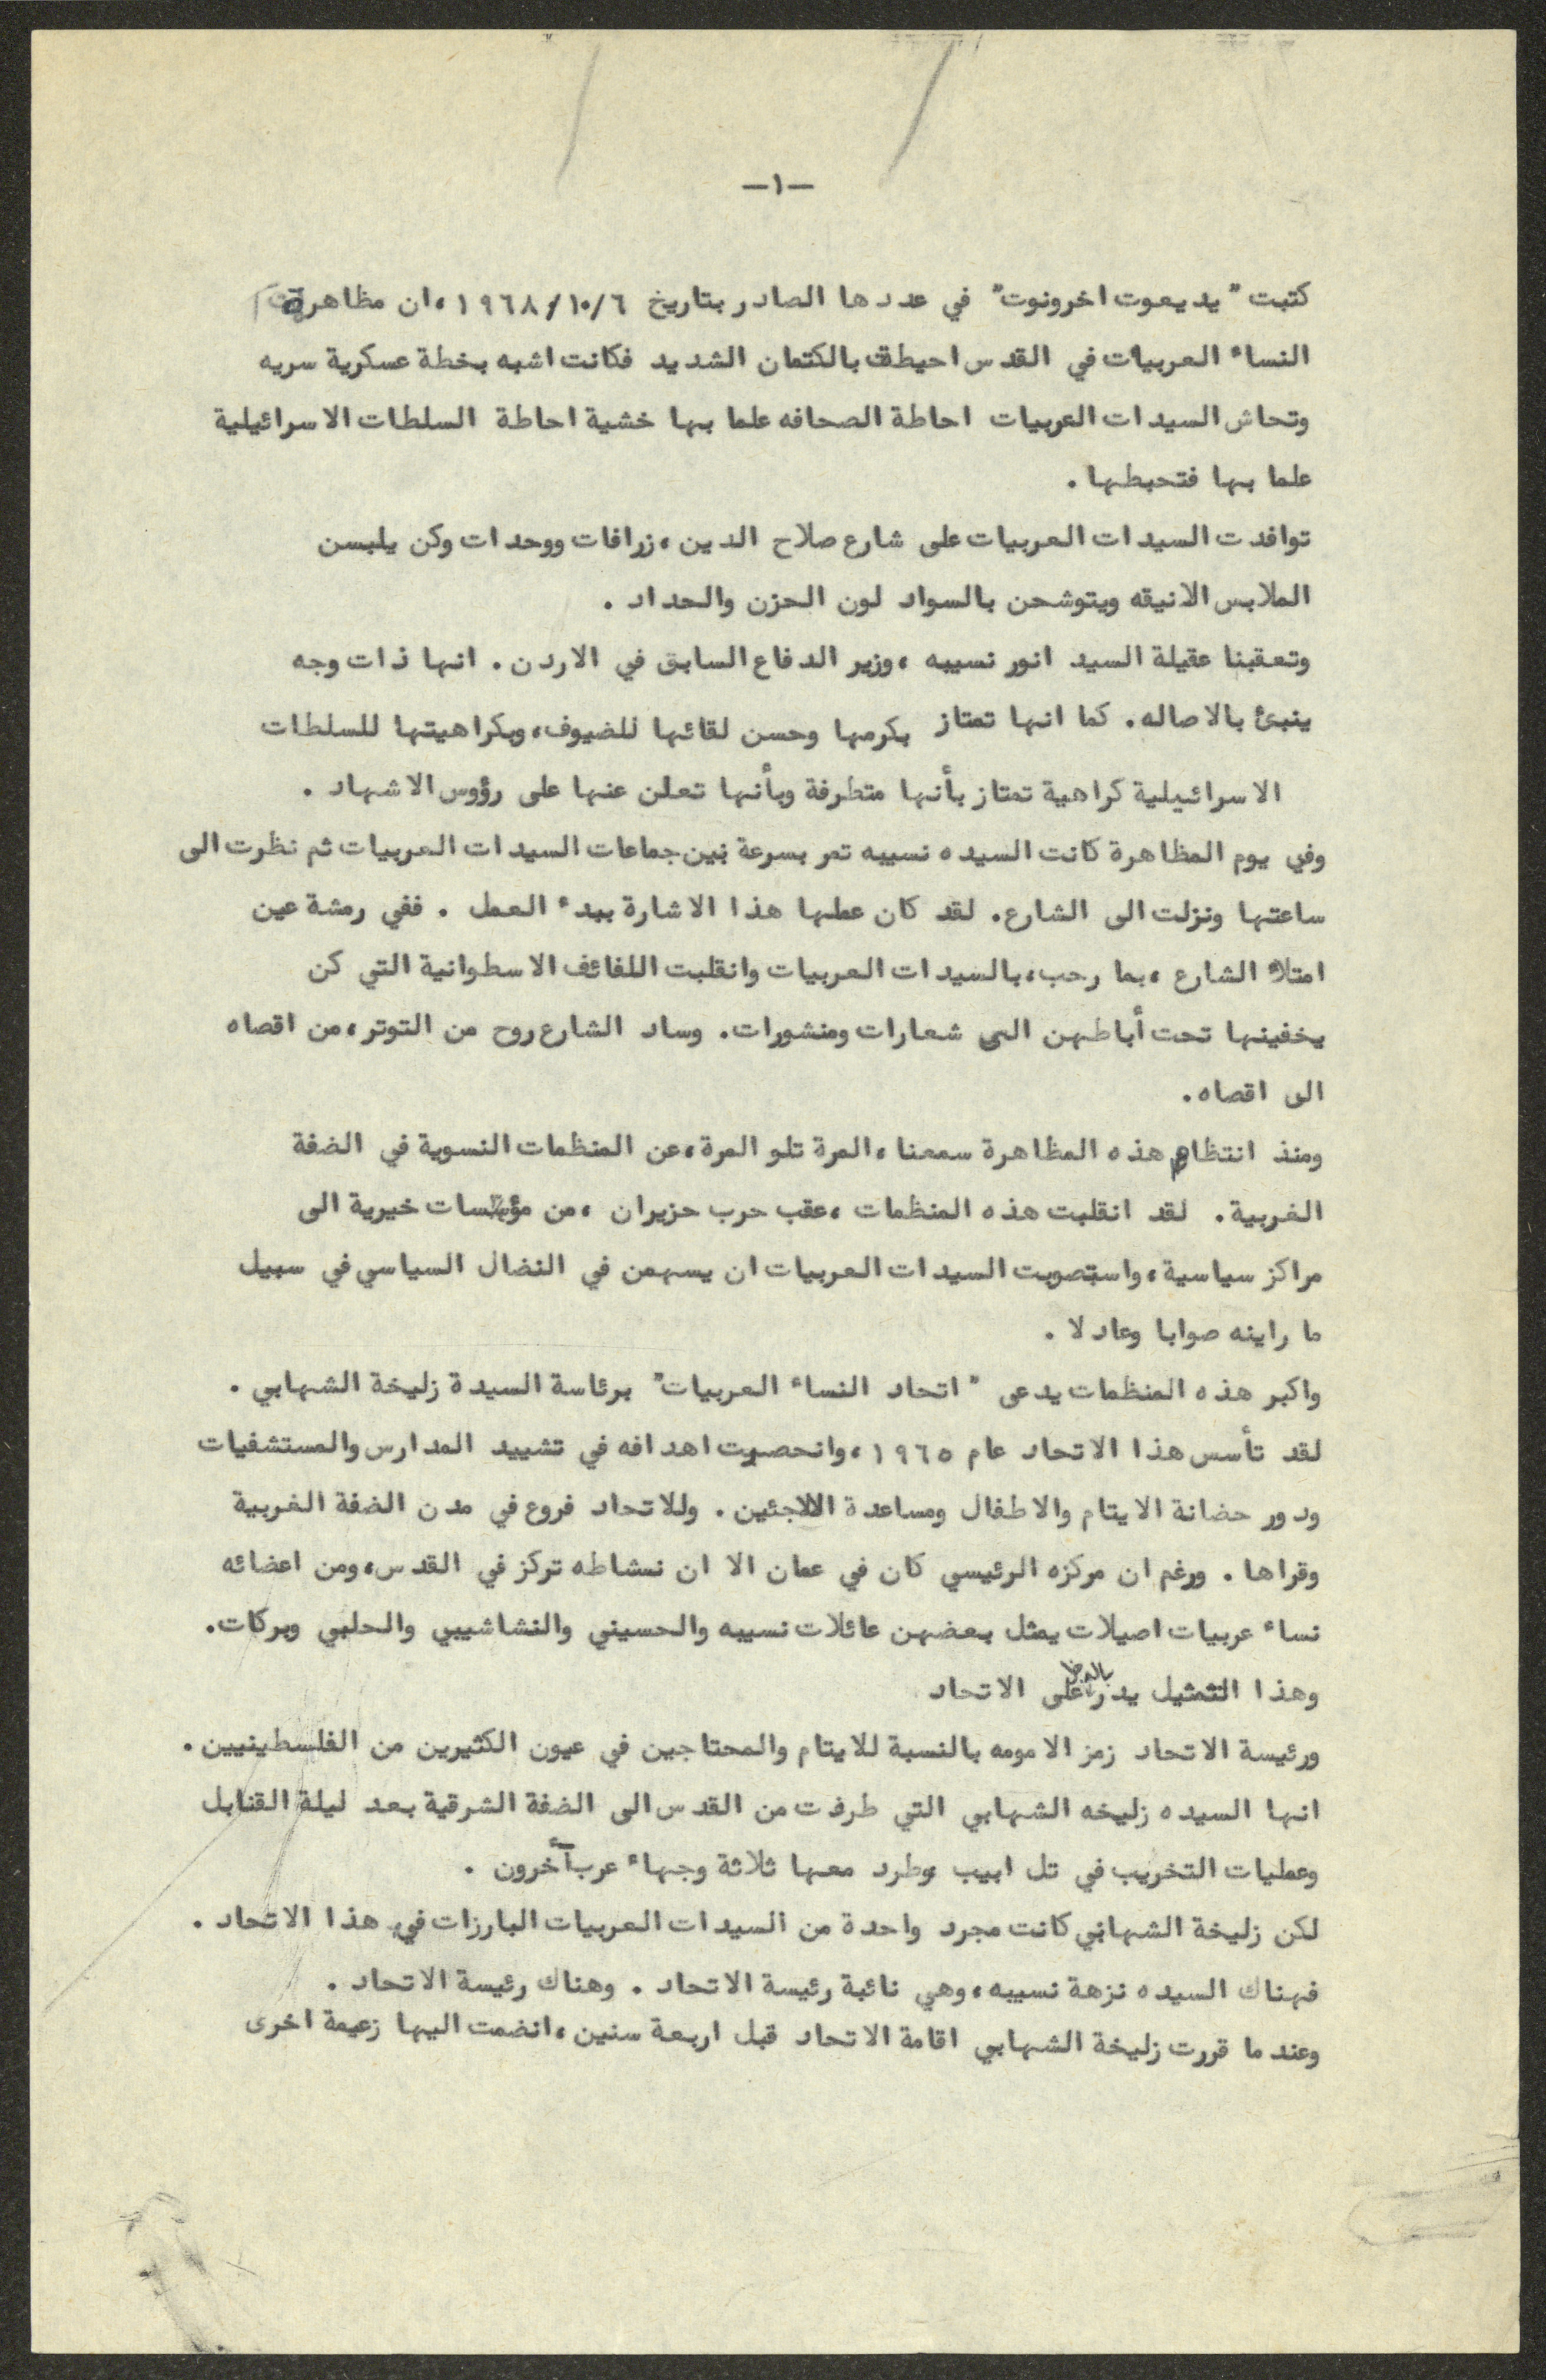 —١—
كتبت "يديعوت اخرونوت" في عددها الصادر بتاريخ ١٩٦٨/١٠/٦، ان مظاهرة
النساء العربيات في القدس احيطت بالكتمان الشديد فكانت اشبه بخطة عسكرية سريه
وتحاش السيدات العربيات احاطة الصحافه علما بها خشية احاطة السلطات الاسرائيلية
علما بها فتحبطها .
توافدت السيدات العربيات على شارع صلاح الدين، زرافات ووحدات وكن يلبسن
الملابس الانيقه ويتوشحن بالسواد لون الحزن والحداد .
وتعقبنا عقيلة السيد انور نسيبه ، وزير الدفاع السابق في الاردن . انها ذات وجه
ينبئ بالاصاله . كما انها تمتاز بكرمها وحسن لقائها للضيوف، وبكراهيتها للسلطات
الاسرائيلية كراهية تمتاز بأنها متطرفة وبأنها تعلن عنها على رؤوس الاشهاد .
وفي يوم المظاهرة كانت السيده نسيبه تمر بسرعة بين جماعات السيدات العربيات ثم نظرت الى
ساعتها ونزلت الى الشارع. لقد كان عملها هذا الاشارة ببدء العمل . ففي رمشة عين
امتلأ الشارع ، بما رحب، بالسيدات العربيات وانقلبت اللفائف الاسطوانية التي كن
يخفينها تحت أباطهن الى شعارات ومنشورات. وساد الشارع روح من التوتر، من اقصاه
الى اقصاه .
ومنذ انتظام هذه المظاهرة سمعنا ، المرة تلو المرة، عن المنظمات النسوية في الضفة
الغربية . لقد انقلبت هذه المنظمات ، عقب حرب حزيران ، من مؤسسات خيرية الى
مراكز سياسية، واستصوبت السيدات العربيات ان يسهمن في النضال السياسي في سبيل
ما راينه صوابا وعادلا .
واكبر هذه المنظمات يدعى "اتحاد النساء العربيات" برئاسة السيدة زليخة الشهابي .
لقد تأسس هذا الاتحاد عام ١٩٦٥، وانحصرت اهدافه في تشييد المدارس والمستشفيات
ودور حضانة الايتام والاطفال ومساعدة اللاجئين . وللاتحاد فروع في مدن الضفة الغربية
وقراها . ورغم ان مركزه الرئيسي كان في عمان الا ان نشاطه تركز في القدس، ومن اعضائه
نساء عربيات اصيلات يمثل بعضهن عائلات نسيبه والحسيني والنشاشيبي والحلبي وبركات.
وهذا التمثيل يدر على الاتحاد
ورئيسة الاتحاد رمز الامومه بالنسبة للايتام والمحتاجين في عيون الكثيرين من الفلسطينيين .
انها السيده زليخه الشهابي التي طرفت من القدس الى الضفة الشرقية بعد ليلة القنابل
وعمليات التخريب في تل ابيب وطرد معها ثلاثة وجهاء عرب آخرون .
لكن زليخة الشهابي كانت مجرد واحدة من السيدات العربيات البارزات في هذا الاتحاد .
فهناك السيده نزهة نسيبه، وهي نائبة رئيسة الاتحاد . وهناك رئيسة الاتحاد .
وعندما قررت زليخة الشهابي اقامة الاتحاد قبل اربعة سنين ، انضمت اليها زعيمة اخرى